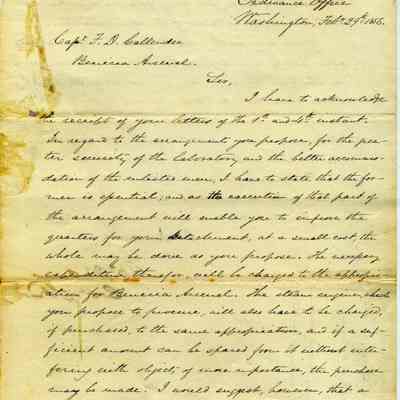 Ordnance Office
Washington, Feby 29th 1856.
Capt. F. D. Callender
Benecia Arsenal.
Sir,
I have to acknowledge
the receipt of your letters of the 1st and 4th instant.
In regard to the arrangement you propose, for the grea-
ter security of the Laboratory and the better accommo-
dation of the enlisted men, I have to state that the for-
mer is essential; and as the execution of that part of
the arrangement will enable you to improve the
quarters for your detachment, at a small cost, the
whole may be done as you propose. The necessary
expenditure therefor, will be charged to the appropri-
ation for Benecia Arsenal. The steam engine, which
you propose to procure, will also have to be charged,
if purchased, to the same appropriation, and if a suf-
ficient amount can be spared from it without inter-
fering with objects of more importance, the purchase
may be made. I would suggest, however, that a